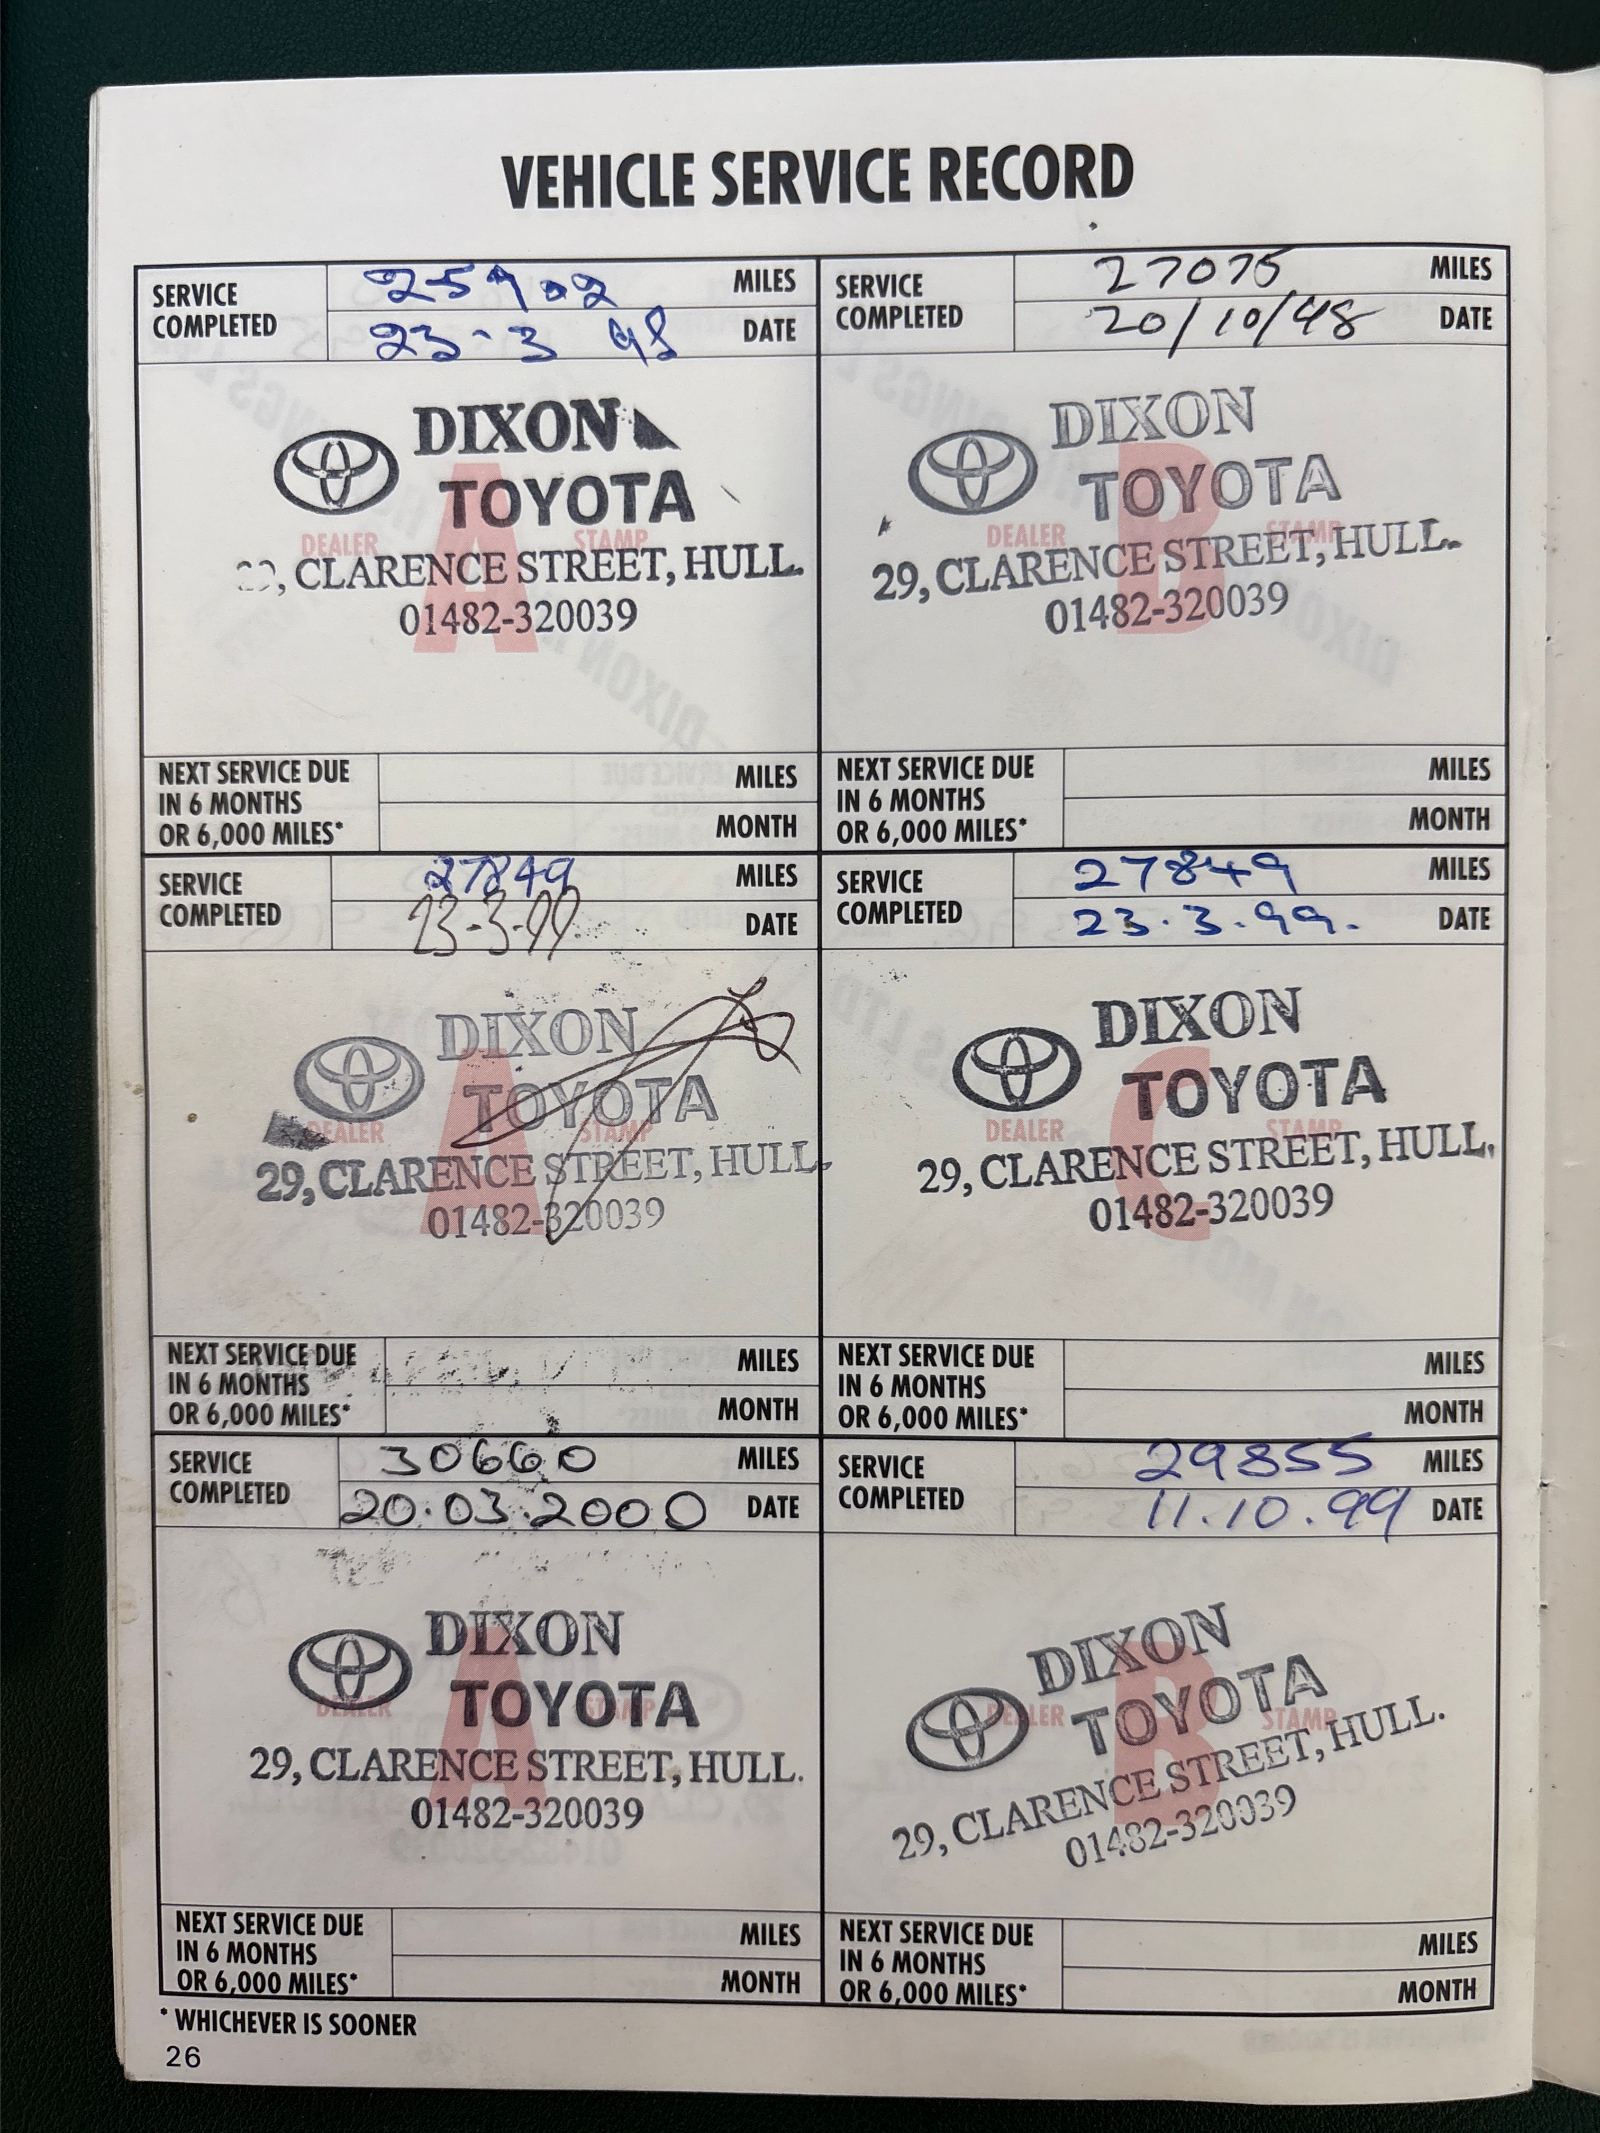 VEHICLE SERVICE RECORD
SERVICE COMPLETED
25902 MILES
23-3 98 DATE
DIXON
TOYOTA
A
DEALER STAMP
CLARENCE STREET, HULL.
01482-320039
NEXT SERVICE DUE
IN 6 MONTHS
OR 6,000 MILES*
MILES
MONTH
SERVICE COMPLETED
27075 MILES
20/10/98 DATE
DIXON
TOYOTA
B
DEALER STAMP
29, CLARENCE STREET, HULL.
01482-320039
NEXT SERVICE DUE
IN 6 MONTHS
OR 6,000 MILES*
MILES
MONTH
SERVICE COMPLETED
27849 MILES
23-3-99 DATE
DIXON
TOYOTA
A
DEALER STAMP
29, CLARENCE STREET, HULL.
01482-320039
NEXT SERVICE DUE
IN 6 MONTHS
OR 6,000 MILES*
MILES
MONTH
SERVICE COMPLETED
27849 MILES
23.3.99. DATE
DIXON
TOYOTA
C
DEALER STAMP
29, CLARENCE STREET, HULL.
01482-320039
NEXT SERVICE DUE
IN 6 MONTHS
OR 6,000 MILES*
MILES
MONTH
SERVICE COMPLETED
30660 MILES
20.03.2000 DATE
DIXON
TOYOTA
A
DEALER STAMP
29, CLARENCE STREET, HULL.
01482-320039
NEXT SERVICE DUE
IN 6 MONTHS
OR 6,000 MILES*
MILES
MONTH
SERVICE COMPLETED
29855 MILES
11.10.99 DATE
DIXON
TOYOTA
B
DEALER STAMP
29, CLARENCE STREET, HULL.
01482-320039
NEXT SERVICE DUE
IN 6 MONTHS
OR 6,000 MILES*
MILES
MONTH
* WHICHEVER IS SOONER
26